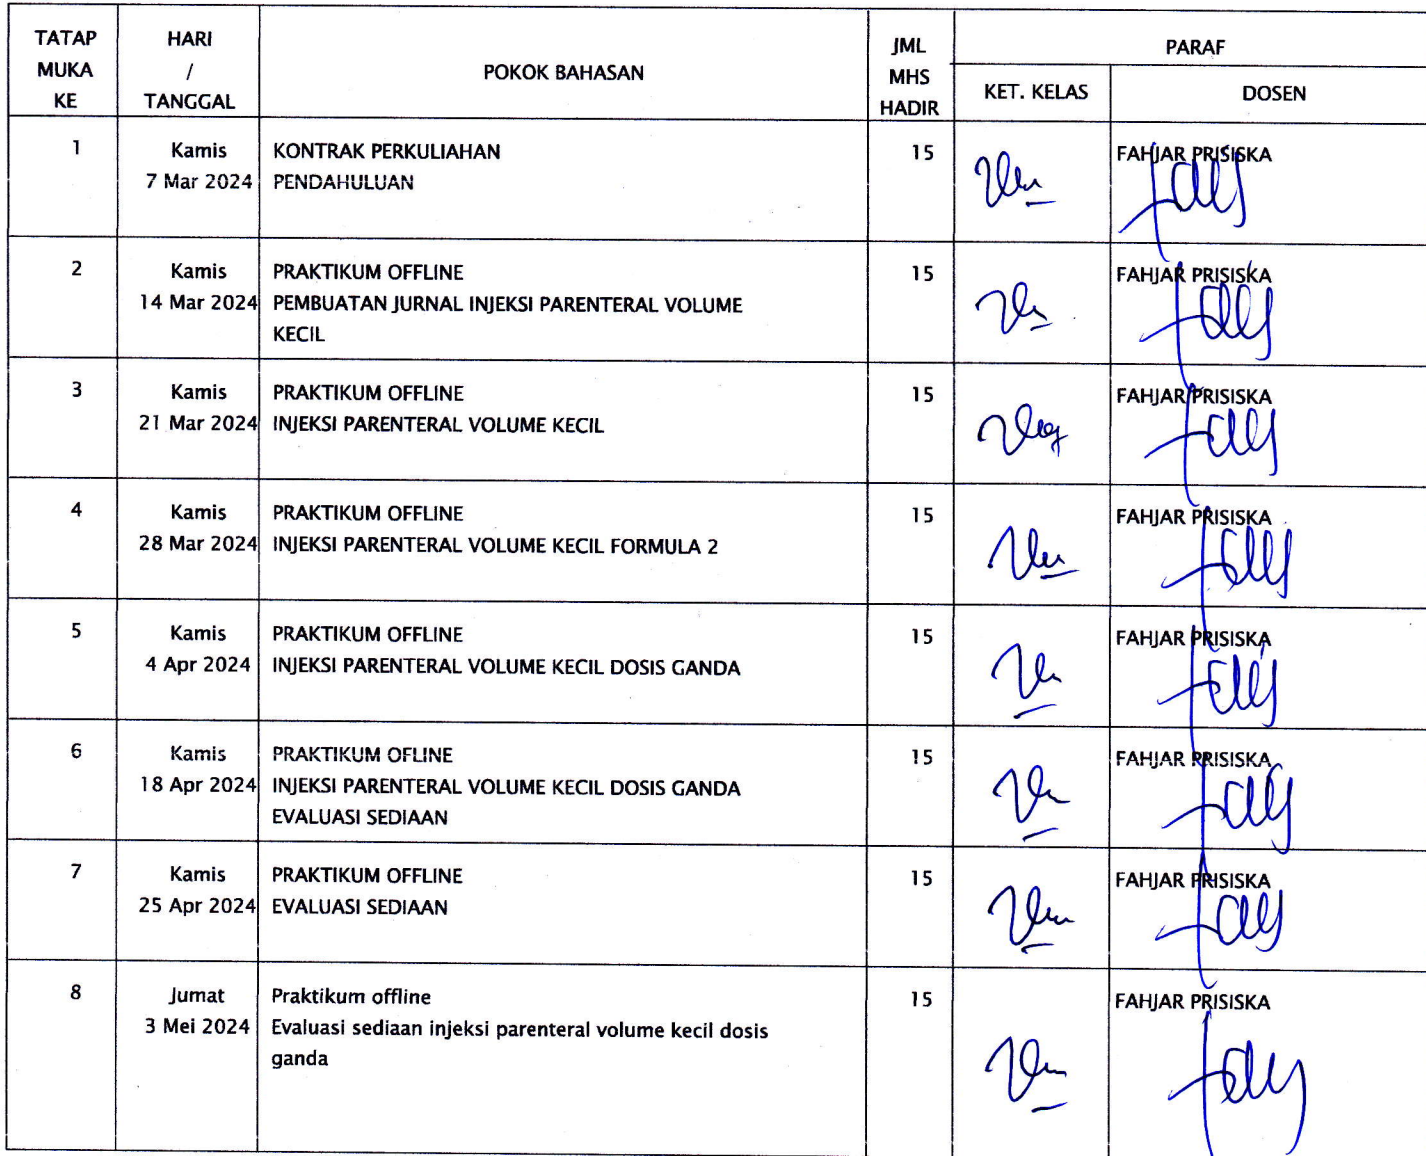 TATAP MUKA KE
HARI / TANGGAL
POKOK BAHASAN
JML MHS HADIR
PARAF
KET. KELAS
DOSEN
1
Kamis
7 Mar 2024
KONTRAK PERKULIAHAN
PENDAHULUAN
15
FAHJAR PRISISKA
2
Kamis
14 Mar 2024
PRAKTIKUM OFFLINE
PEMBUATAN JURNAL INJEKSI PARENTERAL VOLUME
KECIL
15
FAHJAR PRISISKA
3
Kamis
21 Mar 2024
PRAKTIKUM OFFLINE
INJEKSI PARENTERAL VOLUME KECIL
15
FAHJAR PRISISKA
4
Kamis
28 Mar 2024
PRAKTIKUM OFFLINE
INJEKSI PARENTERAL VOLUME KECIL FORMULA 2
15
FAHJAR PRISISKA
5
Kamis
4 Apr 2024
PRAKTIKUM OFFLINE
INJEKSI PARENTERAL VOLUME KECIL DOSIS GANDA
15
FAHJAR PRISISKA
6
Kamis
18 Apr 2024
PRAKTIKUM OFLINE
INJEKSI PARENTERAL VOLUME KECIL DOSIS GANDA
EVALUASI SEDIAAN
15
FAHJAR PRISISKA
7
Kamis
25 Apr 2024
PRAKTIKUM OFFLINE
EVALUASI SEDIAAN
15
FAHJAR PRISISKA
8
Jumat
3 Mei 2024
Praktikum offline
Evaluasi sediaan injeksi parenteral volume kecil dosis
ganda
15
FAHJAR PRISISKA